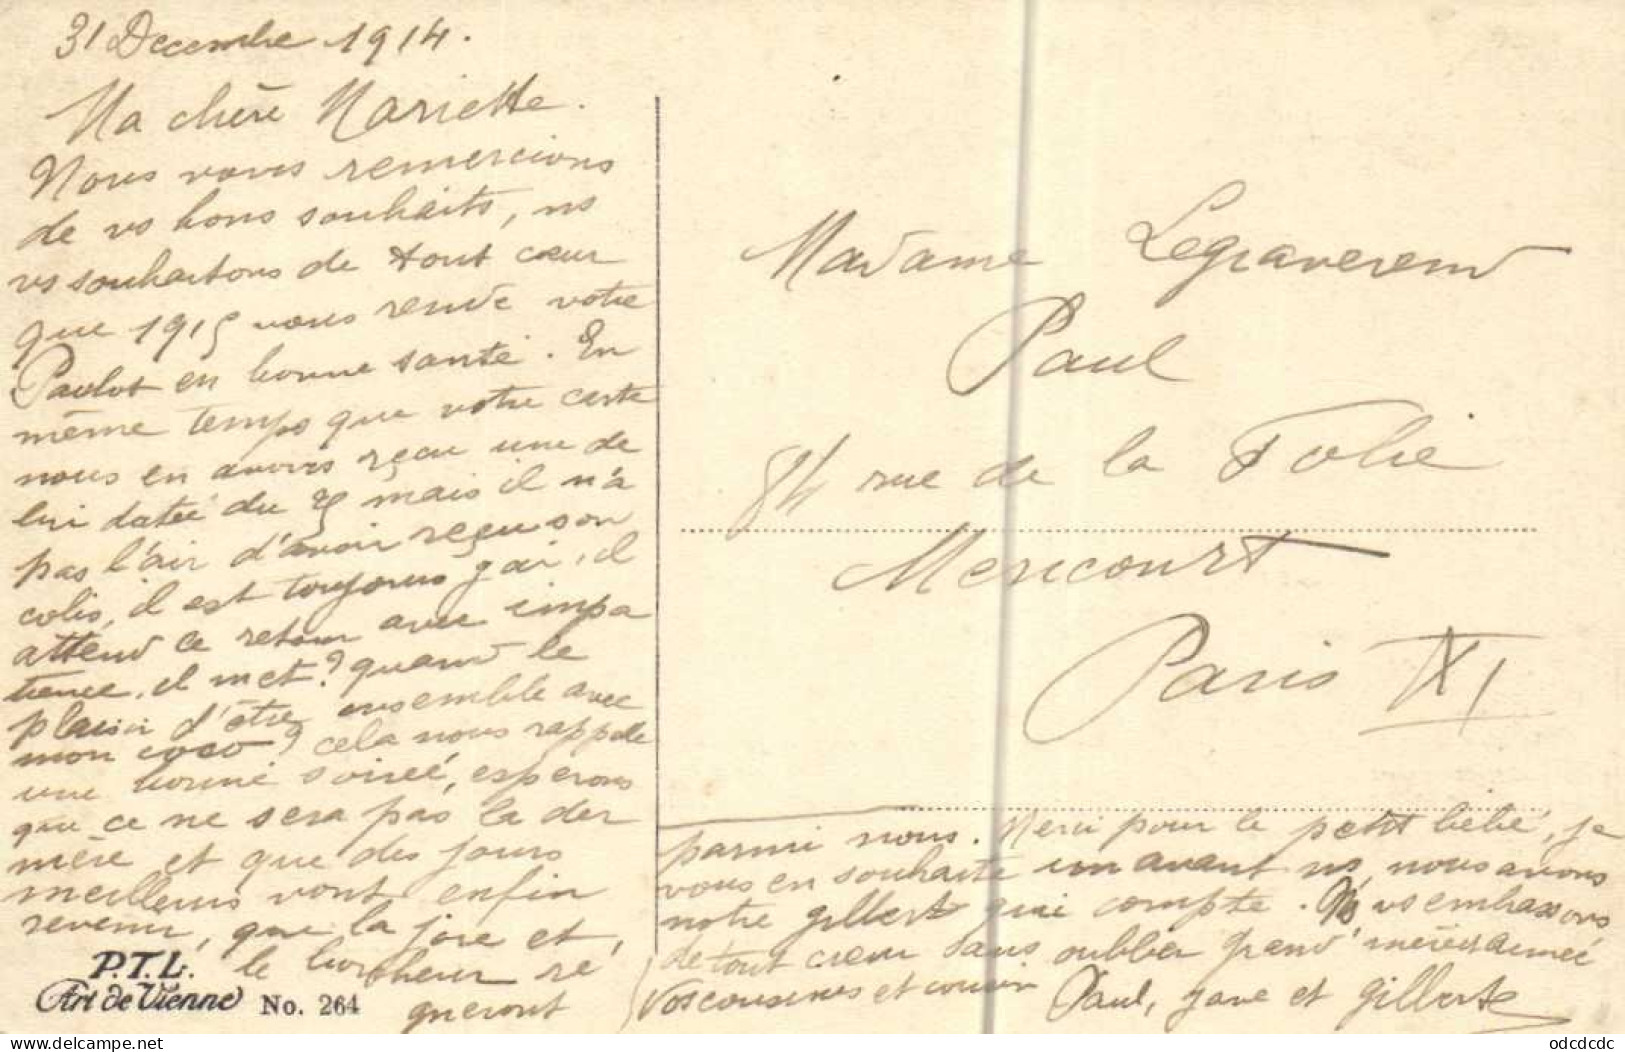 31 Decembre 1914.
Ma chère Mariette.
Nous vous remercions
de vs bons souhaits, ns
vs souhaitons de tout cœur
que 1915 vous rende votre
Paulot en bonne santé. En
même temps que votre carte
nous en avons reçu une de
lui datée du 25 mais il n'a
pas l'air d'avoir reçu son
colis, il est toujours gai, il
attend ce retour avec impa
tience, il met ? quand le
plaisir d'être ensemble avec
mon coco ? cela nous rappelle
une bonne soirée, espérons
que ce ne sera pas la der
nière et que des jours
meilleurs vont enfin
revenir, que la joie et,
le bonheur ré
gneront
parmi nous. Merci pour le petit bébé, je
vous en souhaite un avant ns, nous avons
notre gilbert qui compte. Ns vs embrassons
de tout cœur sans oublier grand' mère
Vos cousines et cousin Paul, et gilberte
Madame Legraverend
Paul
84 rue de la Folie
Mericourt
Paris XI
P.T.L.
Art de Vienne No. 264
odcdcdc